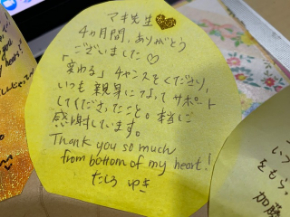 マキ先生
4ヵ月間、ありがとう
ございました♡
「変わる」チャンスをくださり、
いつも親身になってサポート
してくださったこと。本当に
感謝しています。
Thank you so much
from bottom of my heart!
たしろ ゆき
いつ
をもら
加藤